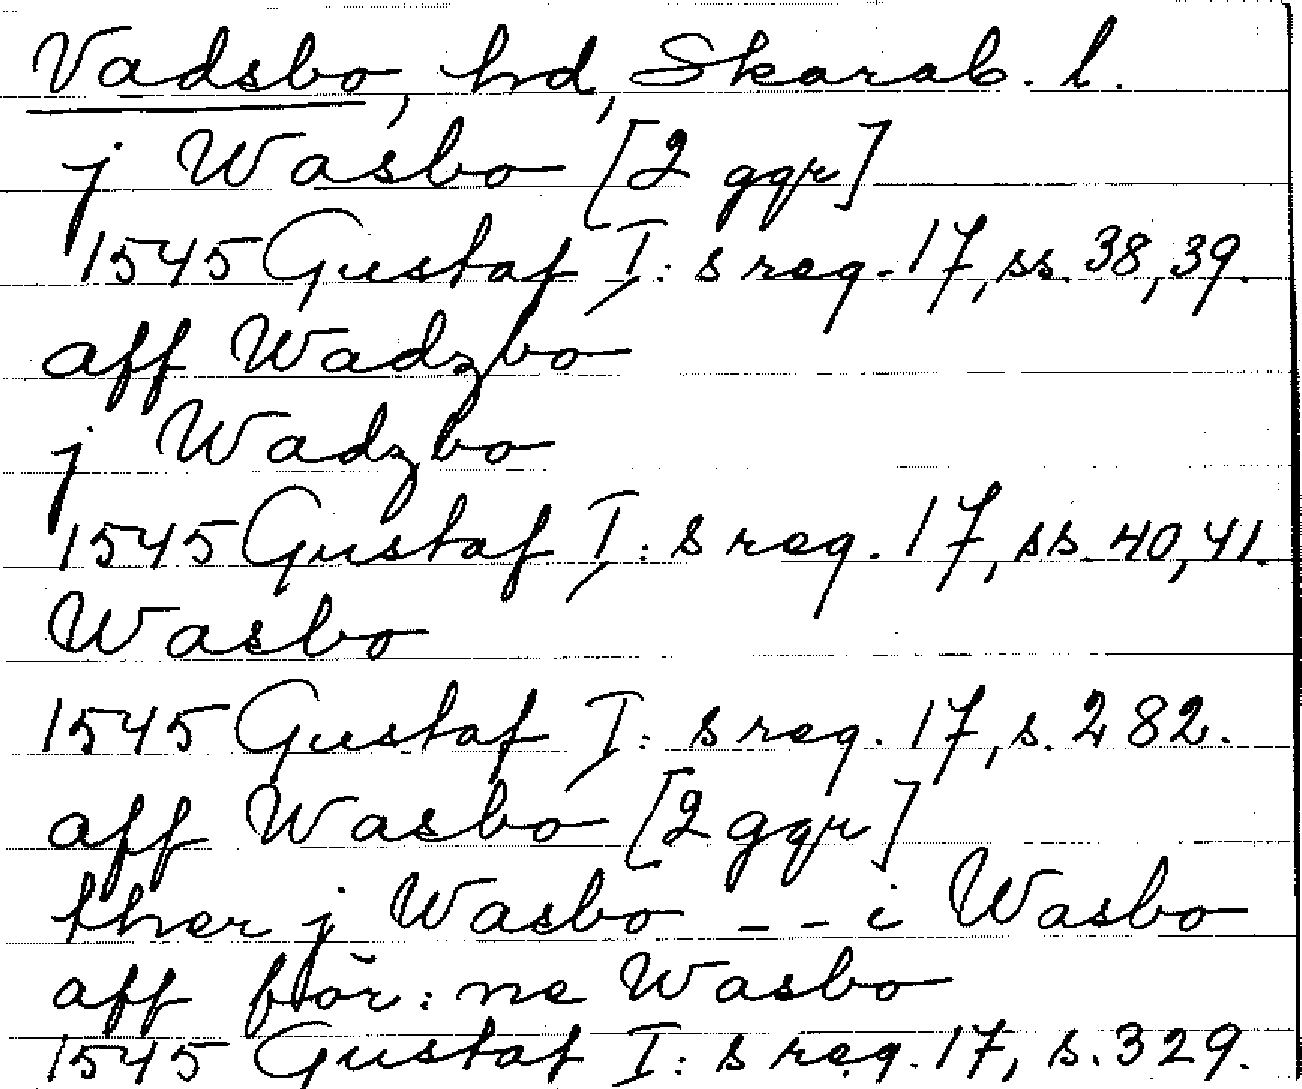 Vadsbo, hd, Skarab. l.
j Wasbo [2 ggr]
1545 Gustaf I: s reg. 17, ss. 38, 39.
aff Wadzbo
j Wadzbo
1545 Gustaf I: s reg. 17, ss. 40, 41.
Wasbo
1545 Gustaf I: s reg. 17, s. 282.
aff Wasbo [2 ggr]
ther j Wasbo -- i Wasbo
aff för: ne Wasbo
1545 Gustaf I: s reg. 17, s. 329.